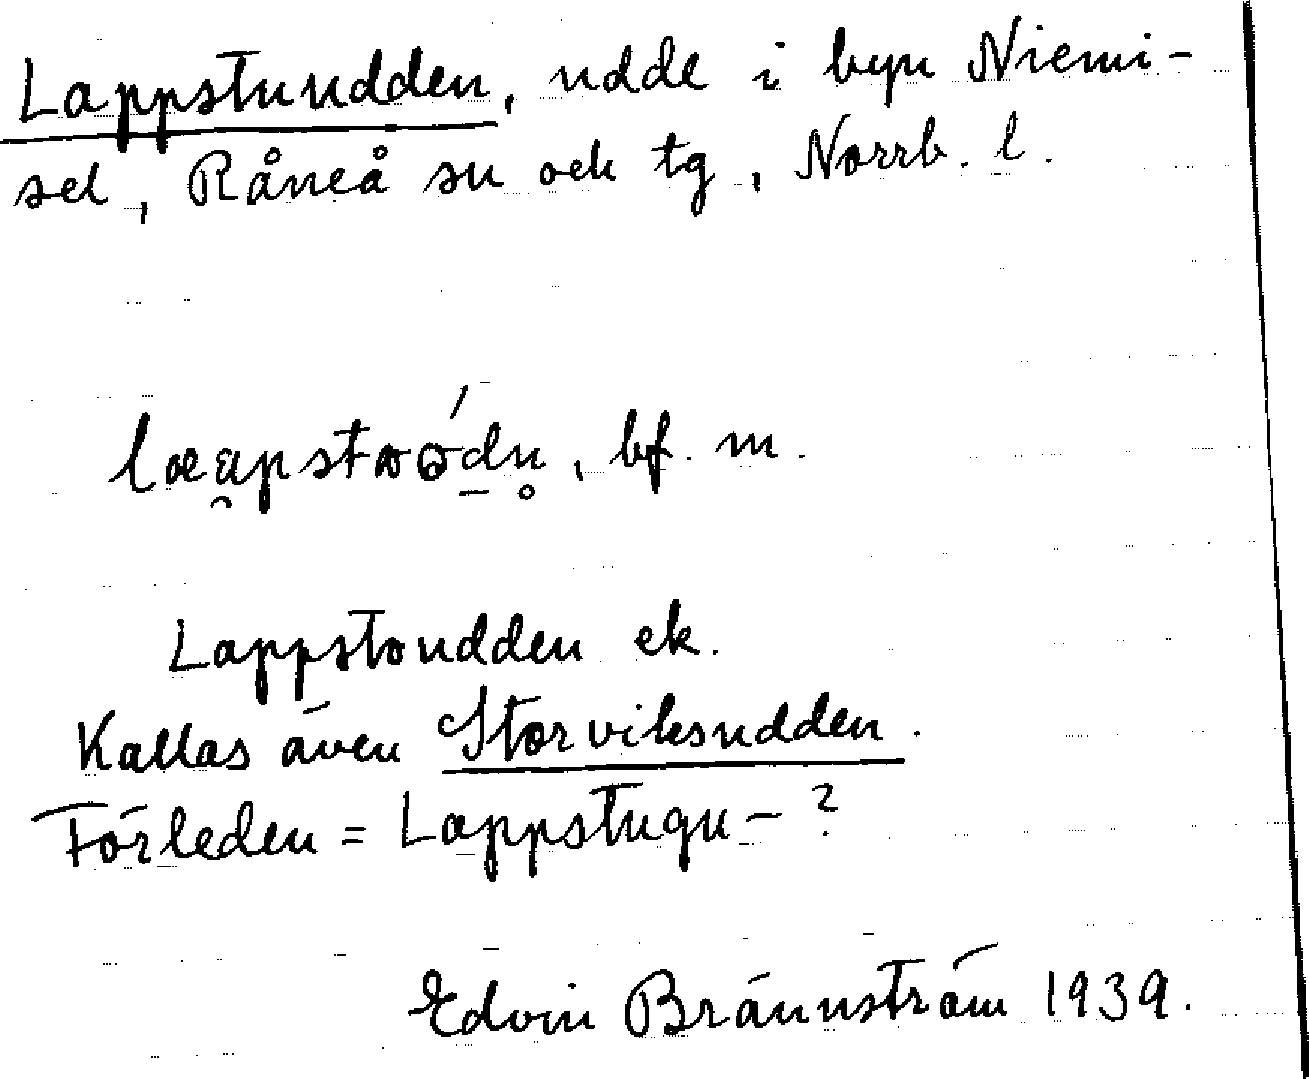 Lappstuudden, udde i byn Niemi-
sel, Råneå sn och tg, Norrb. l.
bf. m.
Lappstoudden ek.
Kallas även Storviksudden.
Förleden = Lappstugu-?
Edvin Brännström 1939.